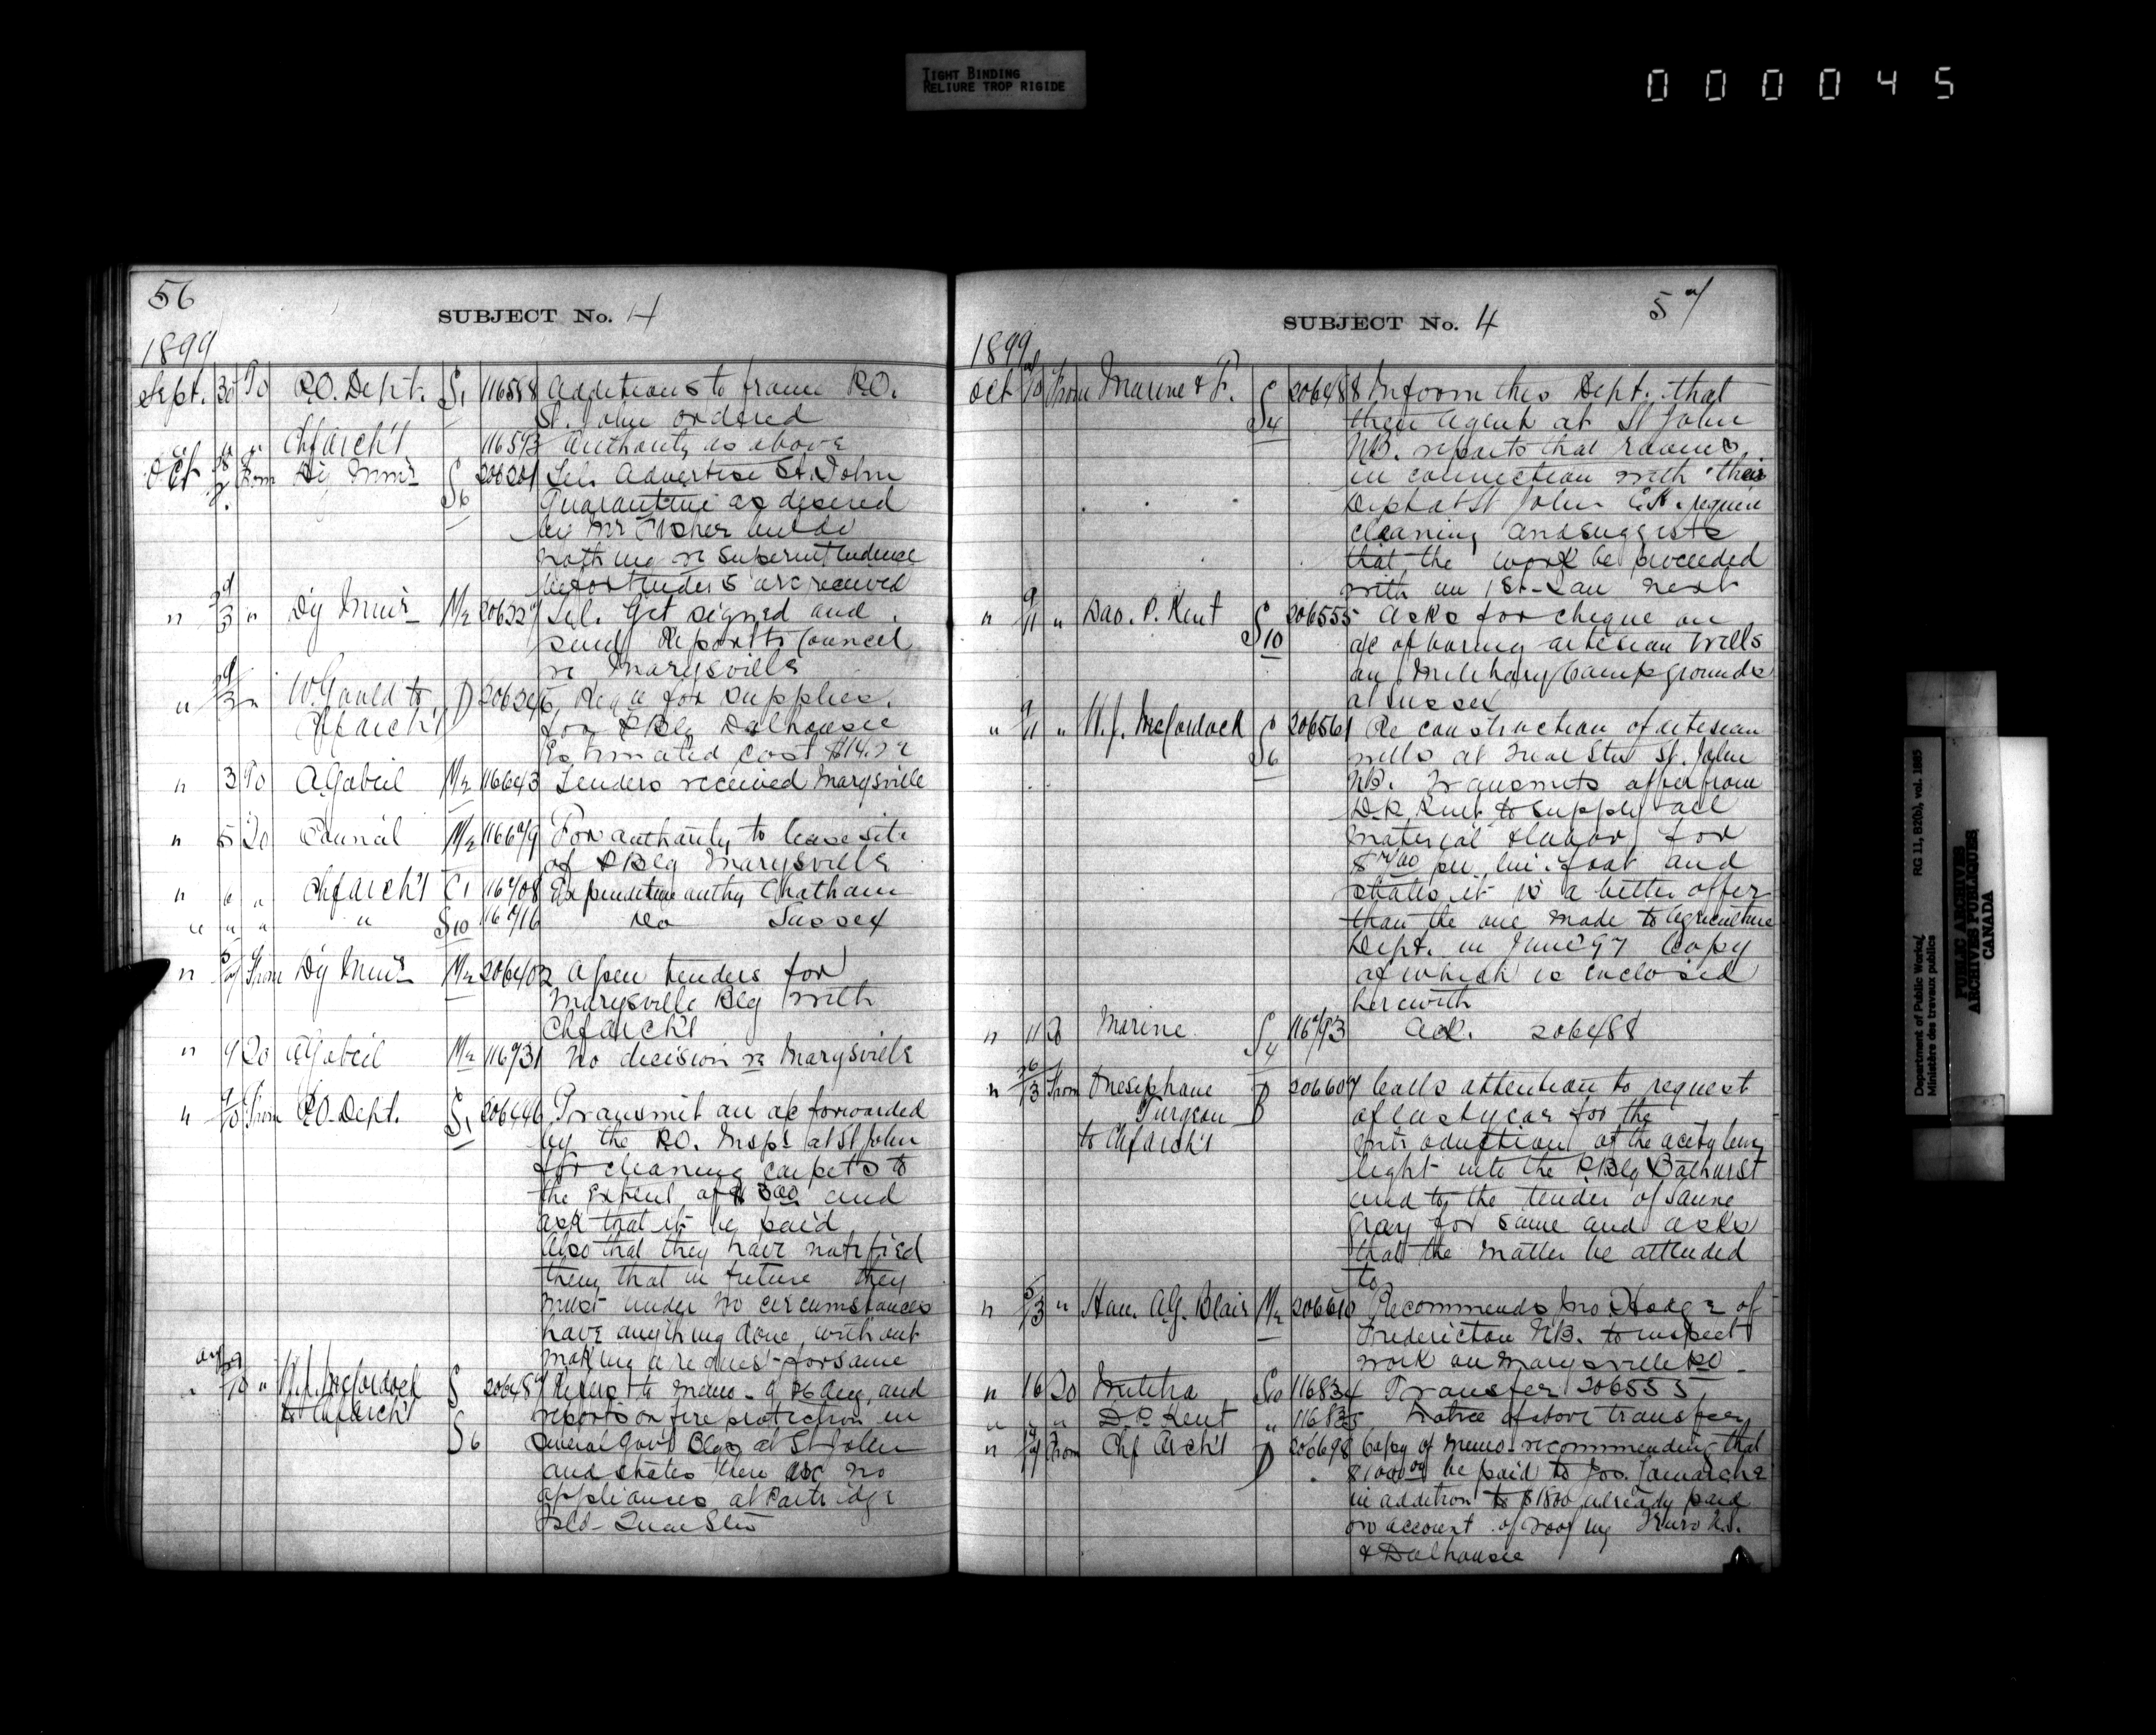 TIGHT BINDING
RELIURE TROP RIGIDE
000045
56
SUBJECT No. 4
1899
Sept. 30 To P.O. Dept. S1 116558 Additions to frame P.O.
St. John ordered
" " " Chf Arch't 116573 Authority as above
Oct From Dy Minr S6 206201 Tel. Advertise St. John
Quarantine as desired
by Mr Fisher but do
nothing re superintendence
before tenders are received
" 29/3 " Dy Minr M2 206227 Tel. Get signed and
send Report to Council
re Marysville
" 29/3 " W. Gould to D 206246 Reqn for supplies
Chf Arch't for P Blg Dalhousie
Estimated cost $14.72
" 3 To A Gobeil M2 116643 Tenders received Marysville
" 5 To Council M2 11667/9 For authority to lease site
of P Blg Marysville
" " " Chf Arch't C1 116708 Expenditure authy Chatham
" " " " S10 116716 Do Sussex
" 5/7 From Dy Minr M2 206402 Open tenders for
Marysville Blg with
Chf Arch't
" 9 To A Gobeil M2 116731 No decision re Marysville
" 9/10 From P.O. Dept. S1 206446 Transmit an a/c forwarded
by the P.O. Inspr at St John
for cleaning carpets to
the extent of $3.00 and
ask that it be paid
Also that they have notified
them that in future they
must under no circumstances
have anything done without
making a request for same
" /10 " H.J. McCordock S6 206487 Refers to memo of 26 Aug, and
to Chf Arch't reports on fire protection in
several Govt Blgs at St John
and states there are no
appliances at Partridge
Isld Quar Stn
57
SUBJECT No. 4
1899
Oct /10 From Marine & F. S4 206488 Inform this Dept. that
their Agent at St John
NB. reports that rooms
in connection with their
Dept at St John C.H. require
cleaning and suggests
that the work be proceeded
with on 1st Jan next
" 9/11 " Dao. P. Kent S10 206555 Asks for cheque on
a/c of boring artesian wells
on Military Camp grounds
at Sussex
" 9/11 " H.J. McCordock S6 206561 Re construction of artesian
wells at Quar Stn St. John
NB. Transmits offer from
D.P. Kent to supply all
material & labor for
per lin. foot and
states it is a better offer
than the one made to Agriculture
Dept. in June 97 Copy
of which is enclosed
herewith
" 11 To Marine. S4 116793 Ack. 206488
" 26/13 From Onesiphore B 206607 Calls attention to request
Turgeon of last year for the
to Chf Arch't introduction of the acetylene
light into the P Blg Bathurst
and to the tender of
Gray for same and asks
that the matter be attended
to
" 5/13 " Hon. A.G. Blair M2 206610 Recommends Jno Hodge of
Fredericton NB. to inspect
work on Marysville PO
" 16 To Militia S10 116834 Transfer 206555
" " " D.P. Kent " 116835 Notice of above transfer
" 14/17 From Chf Arch't D 206698 Copy of memo recommending that
$1000.00 be paid to Jos. Lamarche
in addition to $1800 already paid
on account of roofing Truro N.S.
& Dalhousie
Department of Public Works/
Ministère des travaux publics
RG 11, B2(b), vol. 1885
PUBLIC ARCHIVES
ARCHIVES PUBLIQUES
CANADA